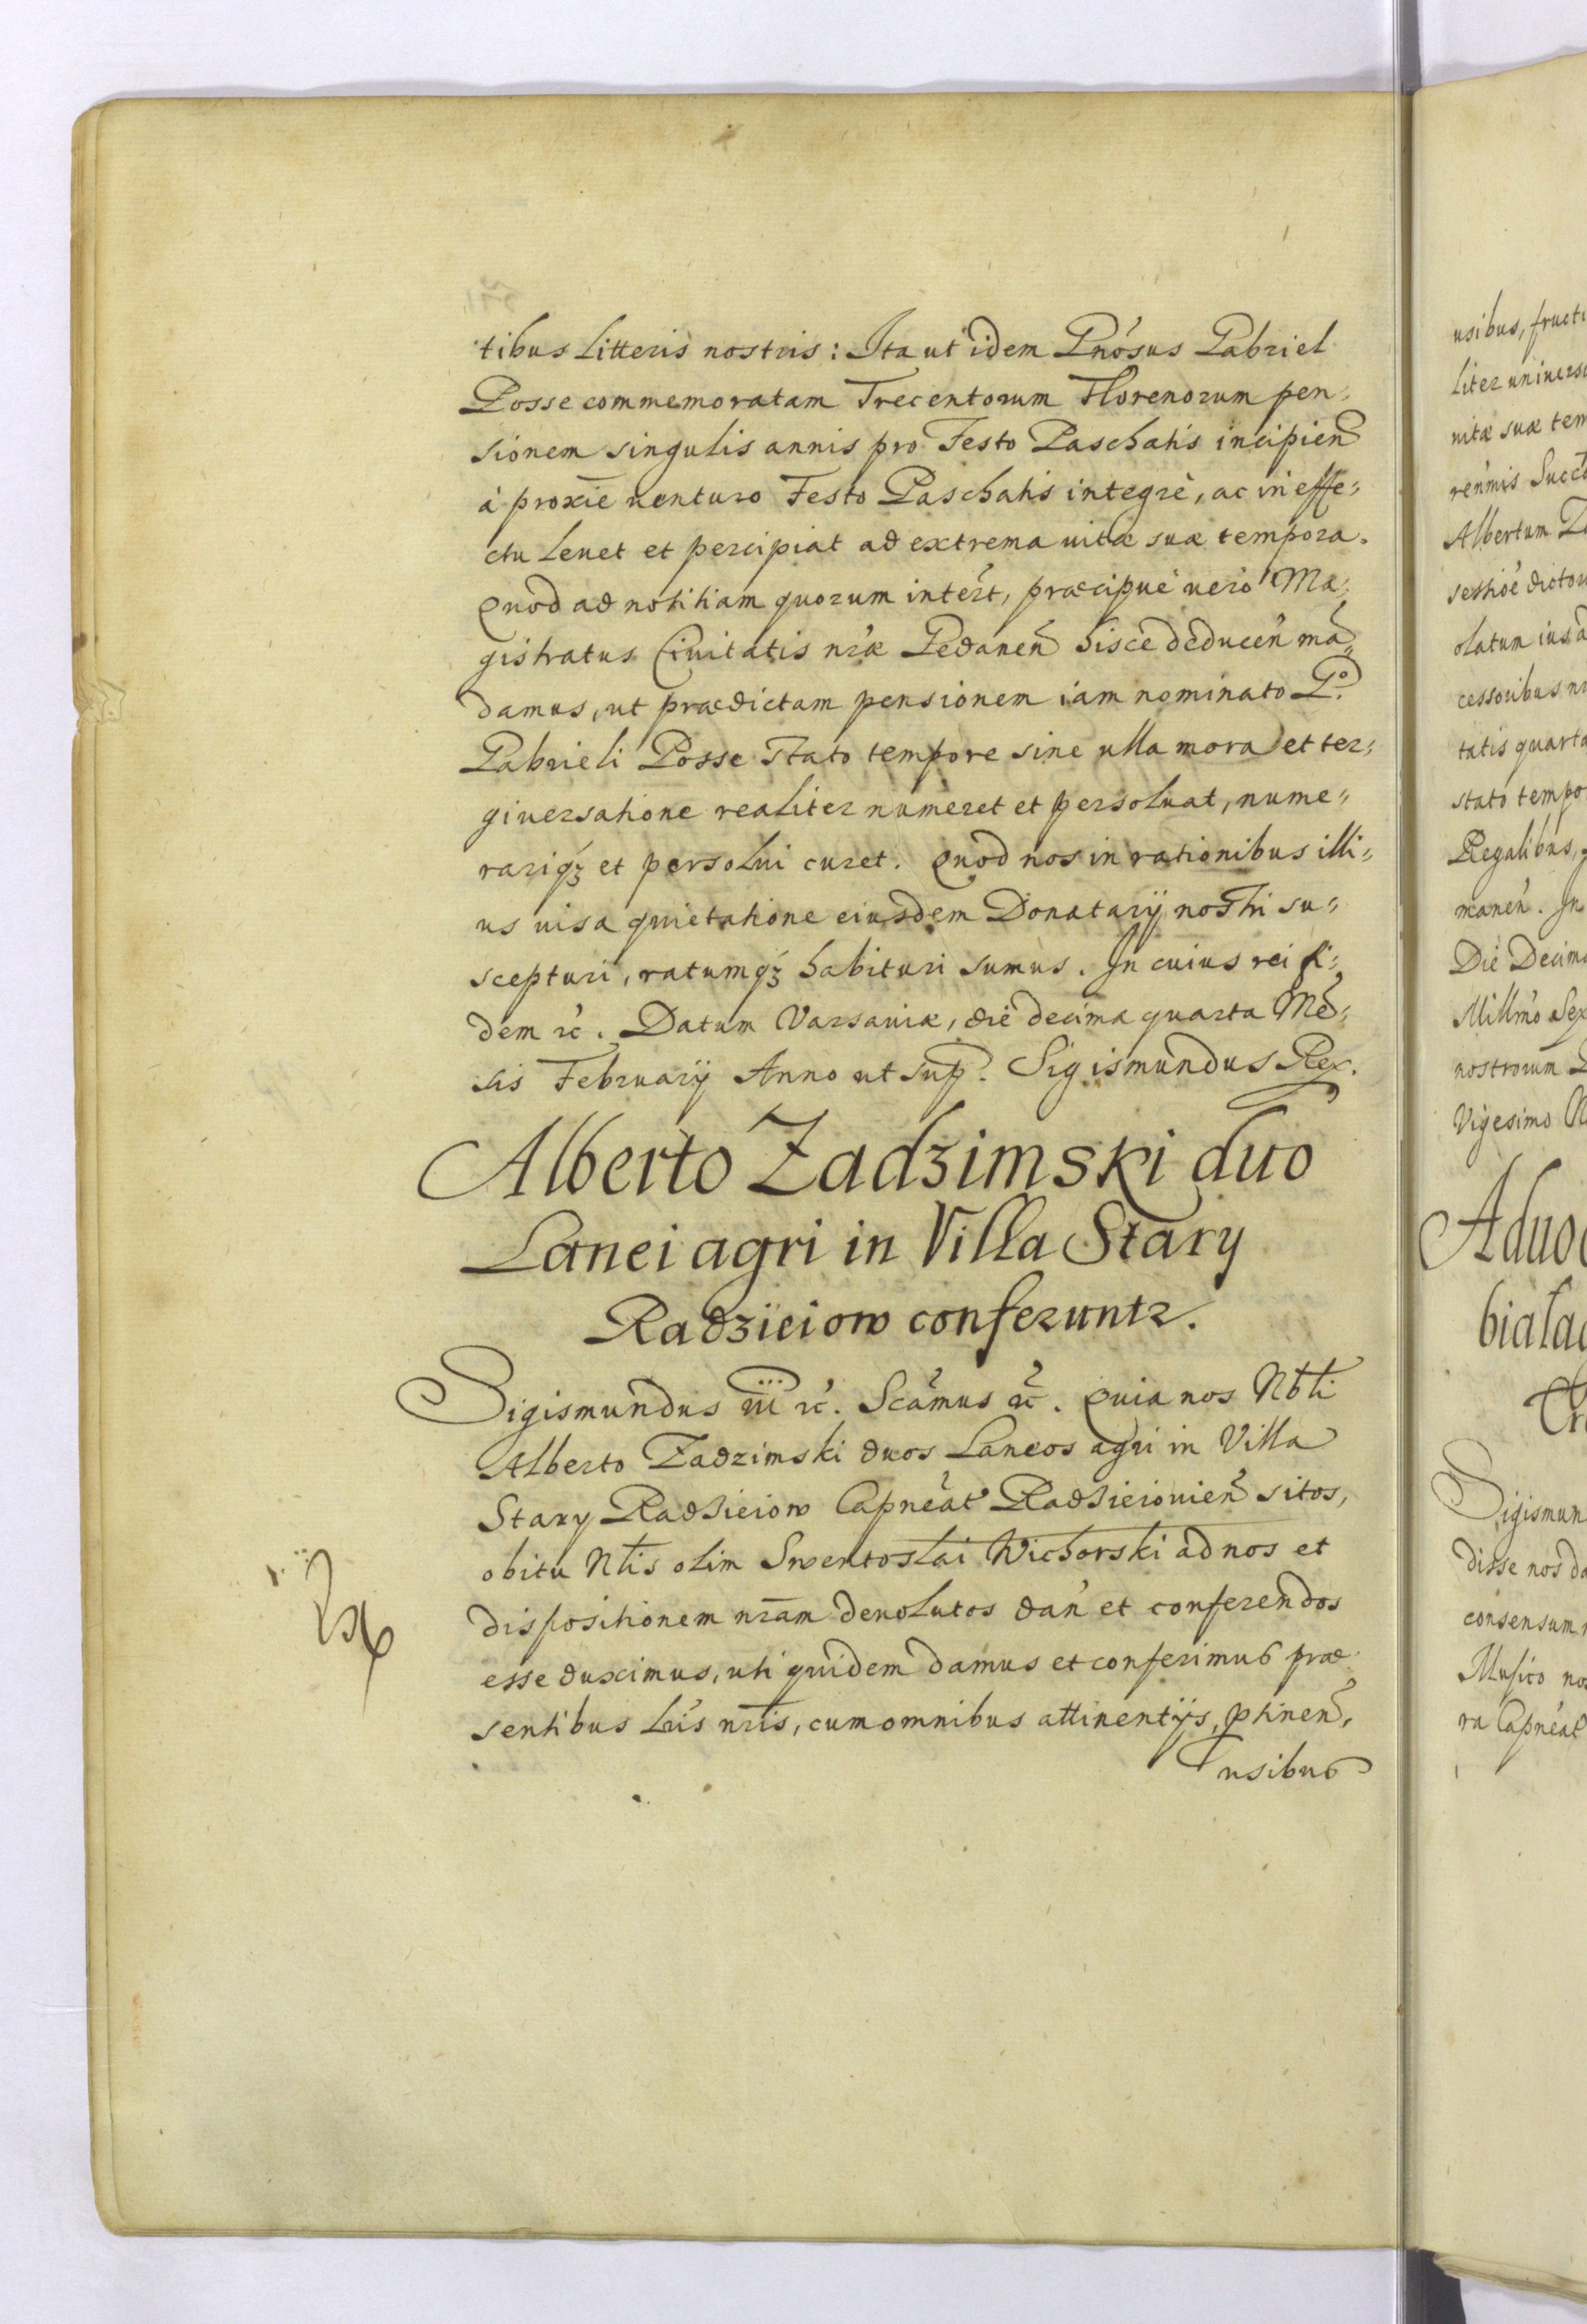 tibus Litteris nostris: Ita ut idem Gnósus Gabriel
Posse commemoratam Trecentorum Florenorum pen=
sionem singulis annis pro Festo Paschatis incipien
à proxie venturo Festo Paschatis integrè, ac in effe=
ctu levet et percipiat ad extrema vitæ suæ tempora.
Quod ad notitiam quorum intert, præcipuè verò Ma=
gistratus Civitatis nræ Gedanen hisce deducen mã=
damus, ut prædictam pensionem iam nominato G.º
Gabrieli Posse stato tempore sine ulla mora et ter=
giversatione realiter numeret et persolvat, nume=
rariqz et persolvi curet. Quod nos in rationibus illi=
us visa quietatione eiusdem Donatarij nostri su=
scepturi, ratumqz habituri sumus. In cuius rei fi=
dem rc. Datum Varsaviæ, die decima quarta Mẽ=
sis Februarij Anno ut sup. Sigismundus Rex.
Alberto Zadzimski duo
Lanei agri in Villa Stary
Radzieiow conferuntr.
Sigismundus iii rc. Scámus rc. Quia nos Nbli
Alberto Zadzimski duos Laneos agri in Villa
Stary Radzieiow Capneat Radzieiovien sitos,
obitu Nlis olim Swentoslai Wichorski ad nos et
dispositionem nram devolutos dan et conferendos
esse duximus, uti quidem damus et conferimus præ
sentibus Lris nris, cum omnibus attinentijs, ptinen,
usibus
usibus, fructi
liter universi
vitæ suæ tem
renmis Succ
Albertum
olatum ius
cessoribus
tatis quarta
stato tempo
Regalibus,
manen. In
Die Decima
Millmo Sex
nostrorum
Vigesimo
Advoc
Sigismun
disse nos
consensum
Musico nos
ra Capneat